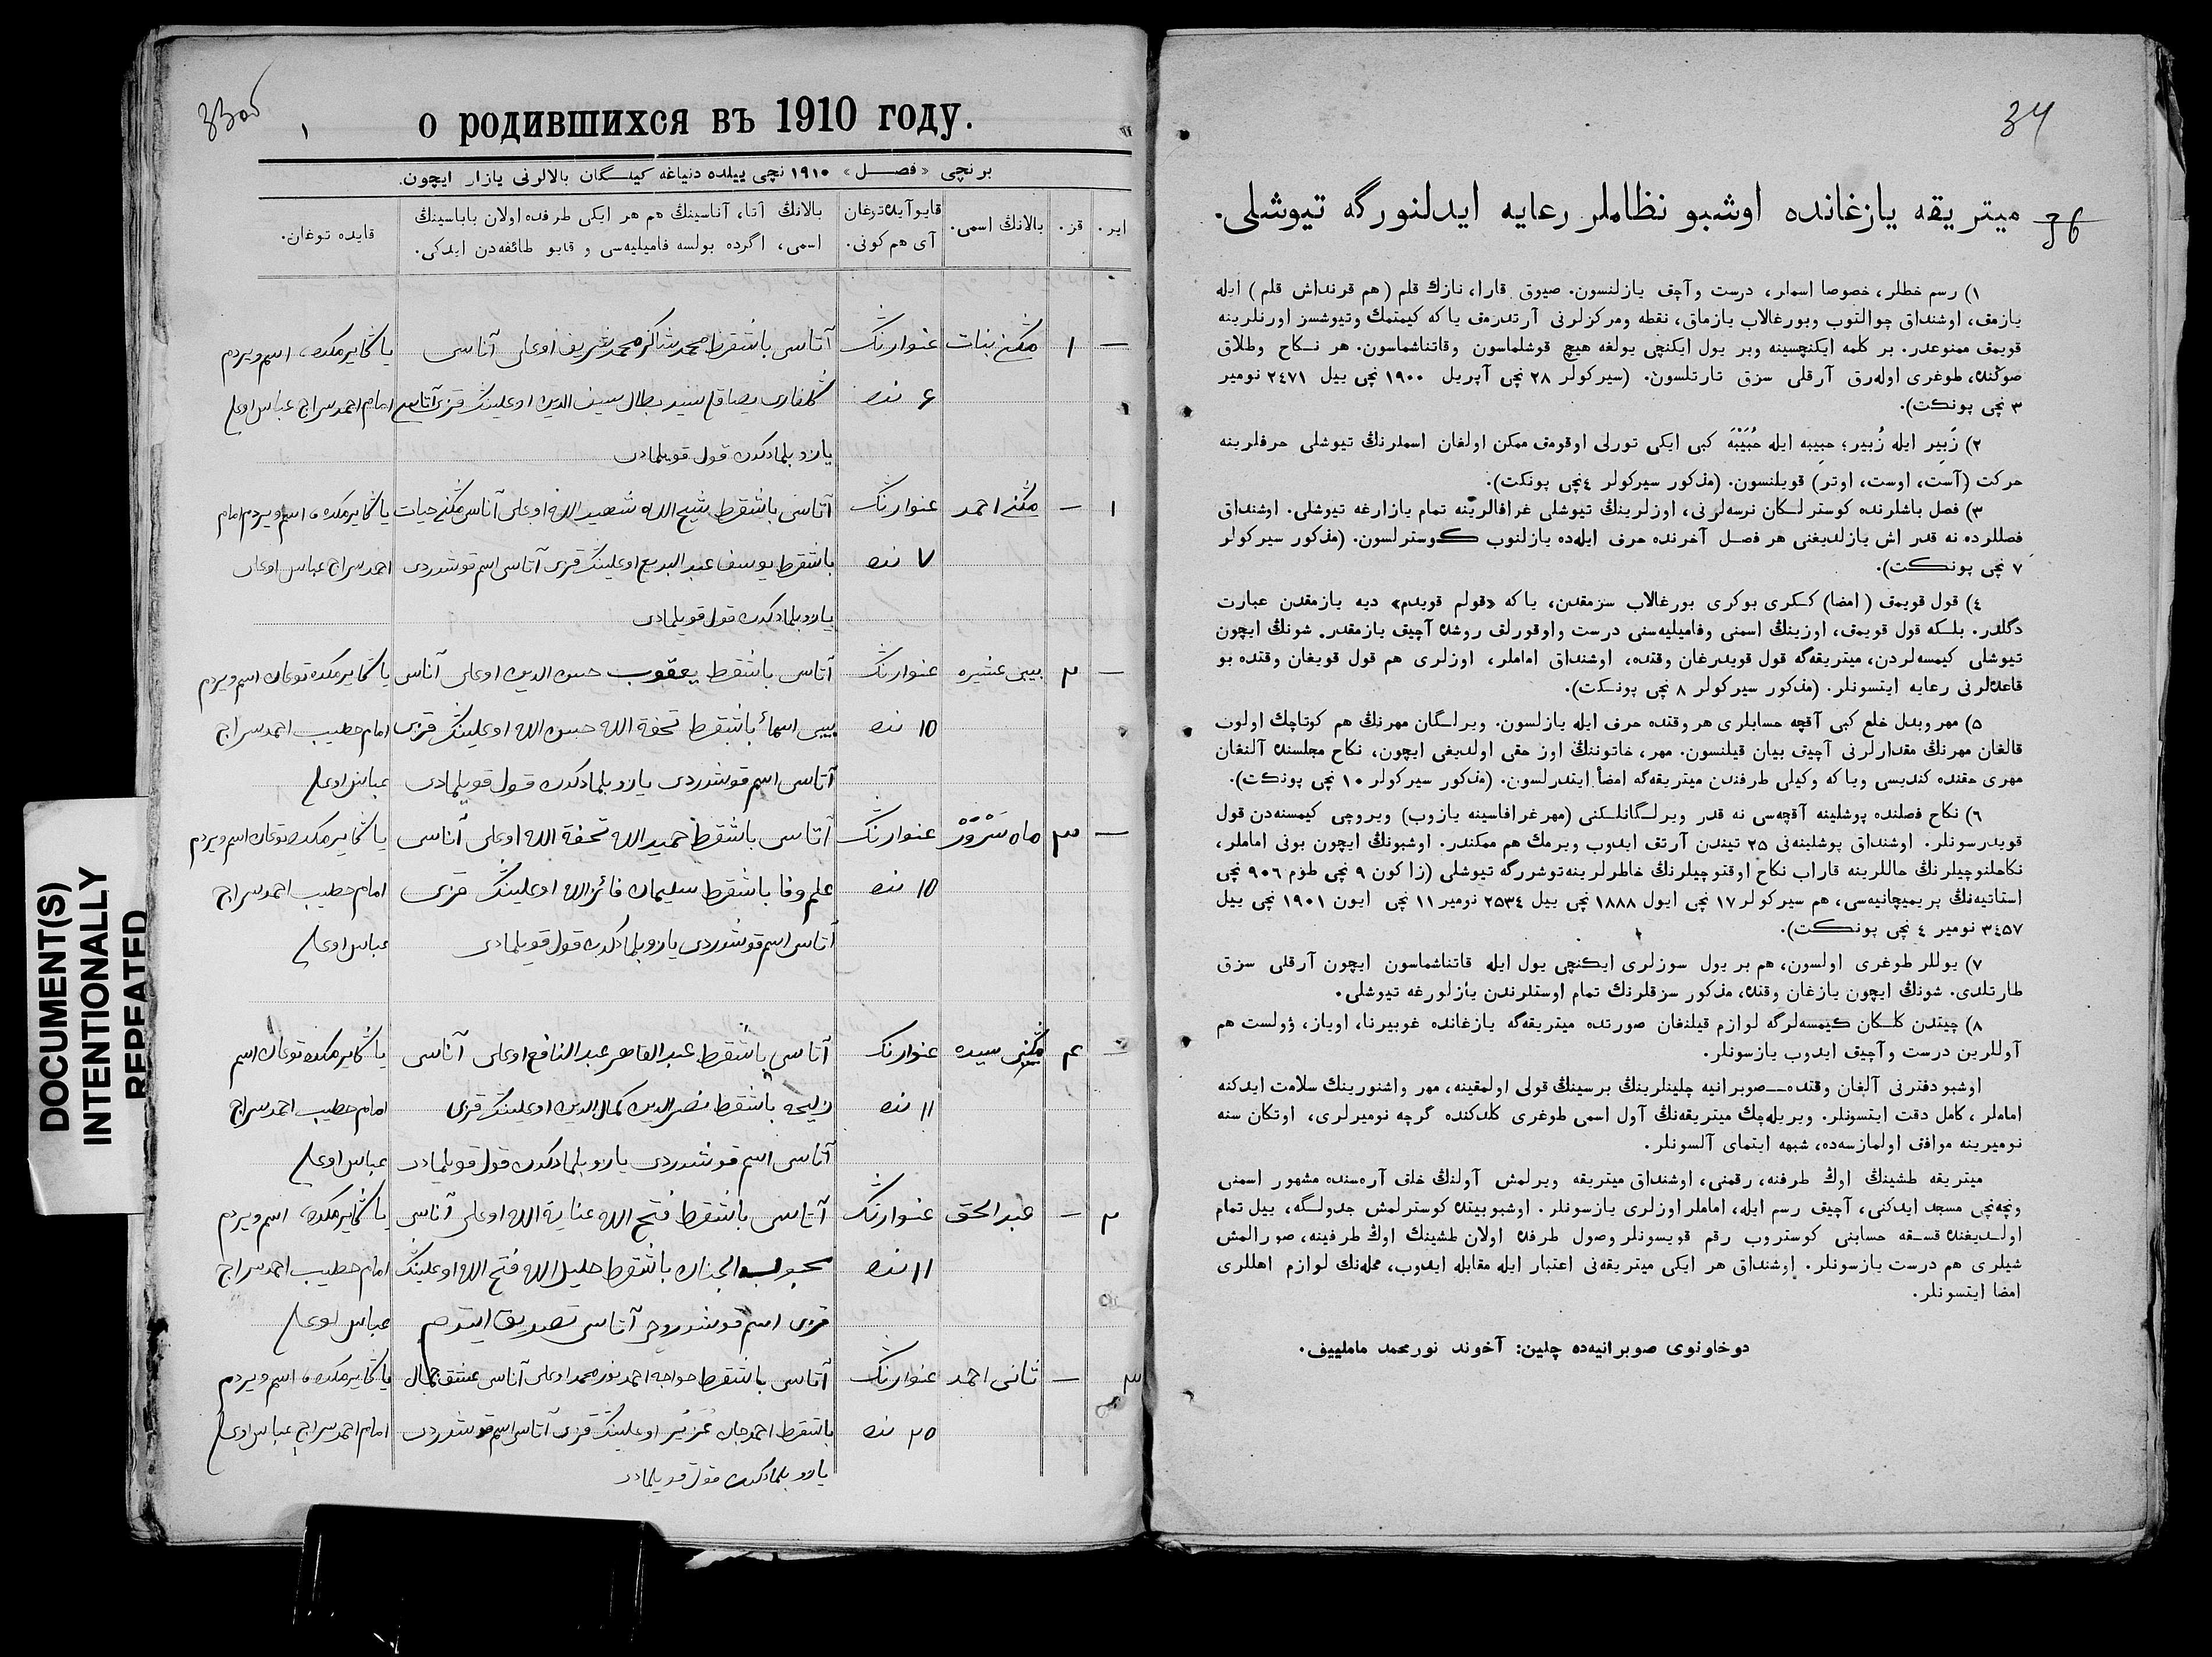 о родившихся въ 1910 году.
برنچی «فصل» ١٩١٠ نچی ییلده دنیاغه کیلگان بالالرنی یازار ایچون.
ایر.
قز.
بالانڭ اسمی.
قایو آیده توغان
آی هم کونی.
بالانڭ آتا، آناسینڭ هم هر ایکی طرفده اولان باباسینڭ
اسمی، اگرده بولسه فامیلیه‌سی و قایو طائفه‌دن ایدکی.
قایده توغان.
— ١ بنات غنوارنڭ آتاسی باشقرط محمدشاکر محمدشریف اوغلی آناسی اسم ویردم
٦ نده سیف الدین اوعلینڭ قزی امام احمدسراج عباس اوغلی
یازو بلمادکدن قول قویلمادی
١ — احمد غنوارنڭ آتاسی باشقرط شیخ الله شهید الله اوغلی آناسی حیات اسم ویردم امام
٧ نده باشقرط یوسف عبد البدیع اوعلینڭ قزی آتاسی اسم قوشدردی احمدسراج عباس اوغلی
یازو بلمادکدن قول قویلمادی
— ٢ بیبی عشیره غنوارنڭ آتاسی باشقرط یعقوب حسن الدین اوغلی آناسی توغان اسم ویردم
10 نده بیبی اسماء باشقرط تحفة الله حسن الله اوعلینڭ قزی امام خطیب احمدسراج
آتاسی اسم قوشدردی یازو بلمادکدن قول قویلمادی عباس اوغلی
— ٣ ماه سرور غنوارنڭ آتاسی باشقرط حمید الله تحفة الله اوغلی آناسی توغان اسم ویردم
10 نده علم وفا باشقرط سلیمان فائز الله اوعلینڭ قزی امام خطیب احمدسراج
آتاسی اسم قوشدردی یازو بلمادکدن قول قویلمادی عباس اوغلی
— ٤ سیده غنوارنڭ آتاسی باشقرط عبد القاهر عبد النافع اوغلی آناسی توغان اسم
١١ نده زلیخه باشقرط نصر الدین کمال الدین اوعلینڭ قزی امام خطیب احمدسراج
آتاسی اسم قوشدردی یازو بلمادکدن قول قویلمادی عباس اوغلی
٢ — عبد الحق غنوارنڭ آتاسی باشقرط فتح الله عنایة الله اوغلی آناسی اسم ویردم
١١ نده محبوب الجنان باشقرط خلیل الله فتح الله اوعلینڭ امام خطیب احمدسراج
قزی اسم آتاسی تصدیق ایتدم عباس اوغلی
٣ — ثانی احمد غنوارنڭ آتاسی باشقرط خواجه احمد نورمحمد اوغلی آناسی جمال اسم ویردم
٢٥ نده باشقرط احمدجان اوعلینڭ قزی آتاسی اسم قوشدردی امام احمدسراج عباس اوغلی
یازو بلمادکدن قول قویلمادی
34
میتریقه یازغانده اوشبو نظاملر رعایه ایدلنورگه تیوشلی.
١) رسم خطلر، خصوصا اسملر، درست وآچق یازلنسون. صیوق قارا، نازك قلم (هم قرنداش قلم) ایله
یازمق، اوشنداق چوالتوب وبورغالاب یازماق، نقطه ومرکزلرنی آرتدرمق یاکه کیمتمك وتیوشسز اورنلرینه
قویمق ممنوعدر. بر کلمه ایکنچسینه وبر یول ایکنچی یولغه هیچ قوشلماسون وقاتناشماسون. هر نکاح وطلاق
صوڭنده، طوغری اوله‌رق آرقلی سزق تارتلسون. (سیرکولر ٢٨ نچی آپریل ١٩٠٠ نچی ییل ٢٤٧١ نومیر
٣ نچی پونکت).
٢) زَبِیر ایله زُبیر؛ حبیبه ایله حُبَیْبَه کبی ایکی تورلی اوقومق ممکن اولغان اسملرنڭ تیوشلی حرفلرینه
حرکت (آست، اوست، اوتر) قویلنسون. (مذکور سیرکولر ٤ نچی پونکت).
٣) فصل باشلرنده کوسترلکان نرسه‌لرنی، اوزلرینڭ تیوشلی غرافالرینه تمام یازارغه تیوشلی. اوشنداق
فصللرده نه قدر اش یازلدیغنی هر فصل آخرنده حرف ایله‌ده یازلنوب کوسترلسون. (مذکور سیرکولر
٧ نچی پونکت).
٤) قول قویمق (امضا) ککری بوکری بورغالاب سزمقدن، یاکه «قولم قویدم» دیه یازمقدن عبارت
دگلدر. بلکه قول قویمق، اوزینڭ اسمنی وفامیلیه‌سنی درست واوقورلق روشده آچیق یازمقدر. شونڭ ایچون
تیوشلی کیمسه‌لردن، میتریقه‌گه قول قویدرغان وقتده، اوشنداق اماملر، اوزلری هم قول قویغان وقتده بو
قاعده‌لرنی رعایه ایتسونلر. (مذکور سیرکولر ٨ نچی پونکت).
٥) مهر وبدل خلع کبی آقچه حسابلری هر وقتده حرف ایله یازلسون. ویرلگان مهرنڭ هم کوتاچك اولوب
قالغان مهرنڭ مقدارلرنی آچیق بیان قیلنسون. مهر، خاتوننڭ اوز حقی اولدیغی ایچون، نکاح مجلسنده آلنغان
مهری حقنده کندیسی ویاکه وکیلی طرفندن میتریقه‌گه امضأ ایتدرلسون. (مذکور سیرکولر ١٠ نچی پونکت).
٦) نکاح فصلنده پوشلینه آقچه‌سی نه قدر ویرلگانلکنی (مهر غرافاسینه یازوب) ویروچی کیمسه‌دن قول
قویدرسونلر. اوشنداق پوشلینه‌نی ٢٥ تیندن آرتق ایدوب ویرمك هم ممکندر. اوشبونڭ ایچون بونی اماملر،
نکاحلنوچیلرنڭ حاللرینه قاراب نکاح اوقتوچیلرنڭ خاطرلرینه توشررگه تیوشلی (زاکون ٩ نچی طوم ٩٠٦ نچی
استاتیه‌نڭ پریمیچانیه‌سی، هم سیرکولر ١٧ نچی ایول ١٨٨٨ نچی ییل ٢٥٣٤ نومیر ١١ نچی ایون ١٩٠١ نچی ییل
٣٤٥٧ نومیر ٤ نچی پونکت).
٧) یوللر طوغری اولسون، هم بر یول سوزلری ایکنچی یول ایله قاتناشماسون ایچون آرقلی سزق
طارتلدی. شونڭ ایچون یازغان وقتده، مذکور سزقلرنڭ تمام اوستلرندن یازلورغه تیوشلی.
٨) چیتدن کلکان کیمسه‌لرگه لوازم قیلنغان صورتده میتریقه‌گه یازغانده غوبیرنا، اویاز، وُولست هم
آوللرین درست وآچیق ایدوب یازسونلر.
اوشبو دفترنی آلغان وقتده—صوبرانیه چلینلرینڭ برسینڭ قولی اولمقینه، مهر واشنورینڭ سلامت ایدکنه
اماملر، کامل دقت ایتسونلر. وبریله‌چك میتریقه‌نڭ آول اسمی طوغری کلدکنده گرچه نومیرلری، اوتکان سنه
نومیرینه موافق اولمازسه‌ده، شبهه ایتمای آلسونلر.
میتریقه طشینڭ اوڭ طرفنه، رقمنی، اوشنداق میتریقه ویرلمش آولنڭ خلق آره‌سنده مشهور اسمنی
ونچه‌نچی مسجد ایدکنی، آچیق رسم ایله، اماملر اوزلری یازسونلر. اوشبو بیتده کوسترلمش جدولگه، ییل تمام
اولدیغنده قسقه حسابنی کوستروب رقم قویسونلر وصول طرفده اولان طشینڭ اوڭ طرفینه، صورالمش
شیلری هم درست یازسونلر. اوشنداق هر ایکی میتریقه‌نی اعتبار ایله مقابله ایدوب، محله‌نڭ لوازم اهللری
امضا ایتسونلر.
دوخاونوی صوبرانیه‌ده چلین: آخوند نورمحمد ماملییف.
DOCUMENT(S)
INTENTIONALLY
REPEATED